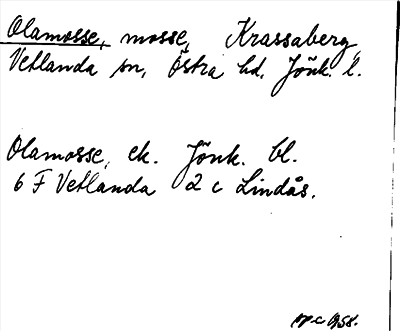 Olamosse, mosse, Krassaberg,
Vetlanda sn, Östra hd, Jönk. l.
Olamosse, ek. Jönk. bl.
6 F Vetlanda 2 c Lindås.
1958.